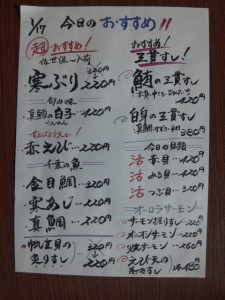 1/17 今日のおすすめ!!
超おすすめ!
佐世保入荷
寒ぶり 220円
旬の味
真鯛の白子 220円
赤えび 220円
千葉の魚
金目鯛 220円
寒あじ 220円
真鯛 220円
帆立貝の
炙りすし 220円
おすすめ!
三貫すし!
鮪の三貫すし
420円
白身の三貫すし
380円
今日の貝類
活 赤貝 420円
活 みる貝 420円
活 つぶ貝
オーロラサーモン
サーモン炙りすし 220円
オニオンサーモン 220円
焼サーモン 260円
えび天の
480円